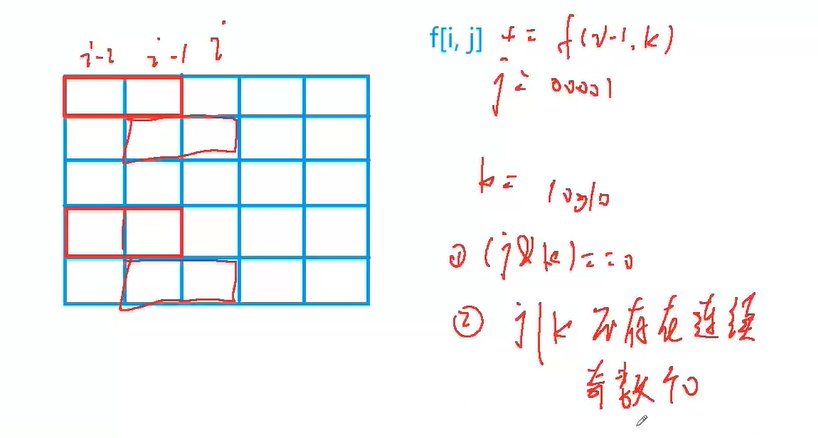 i-2 i-1 i
f[i, j] += f(i-1, k)
j= 00001
k= 10010
① (j&k)==0
② j|k 不存在连续
奇数个0